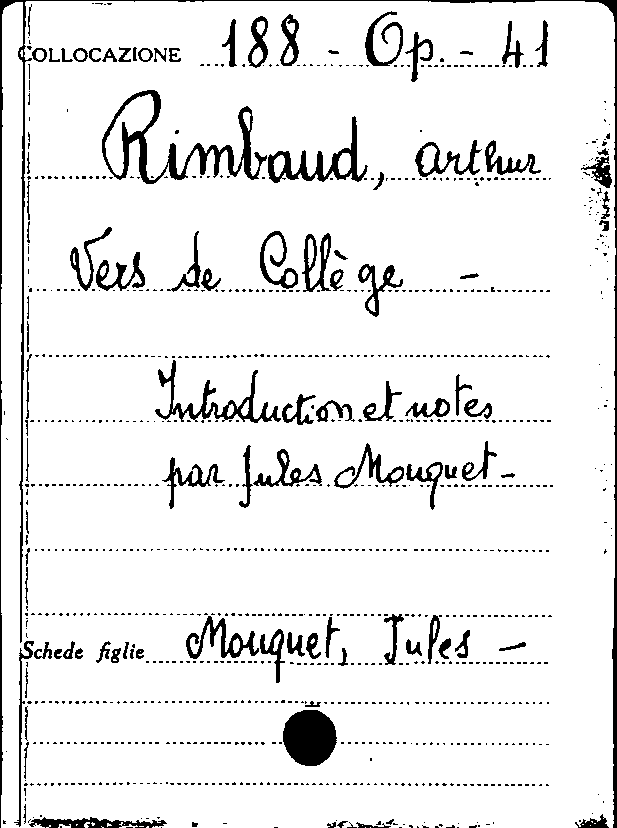 COLLOCAZIONE 188 - Op. - 41
Rimbaud, Arthur
Vers de Collège -.
Introduction et notes
par Jules Mouquet -
Schede figlie Mouquet, Jules -